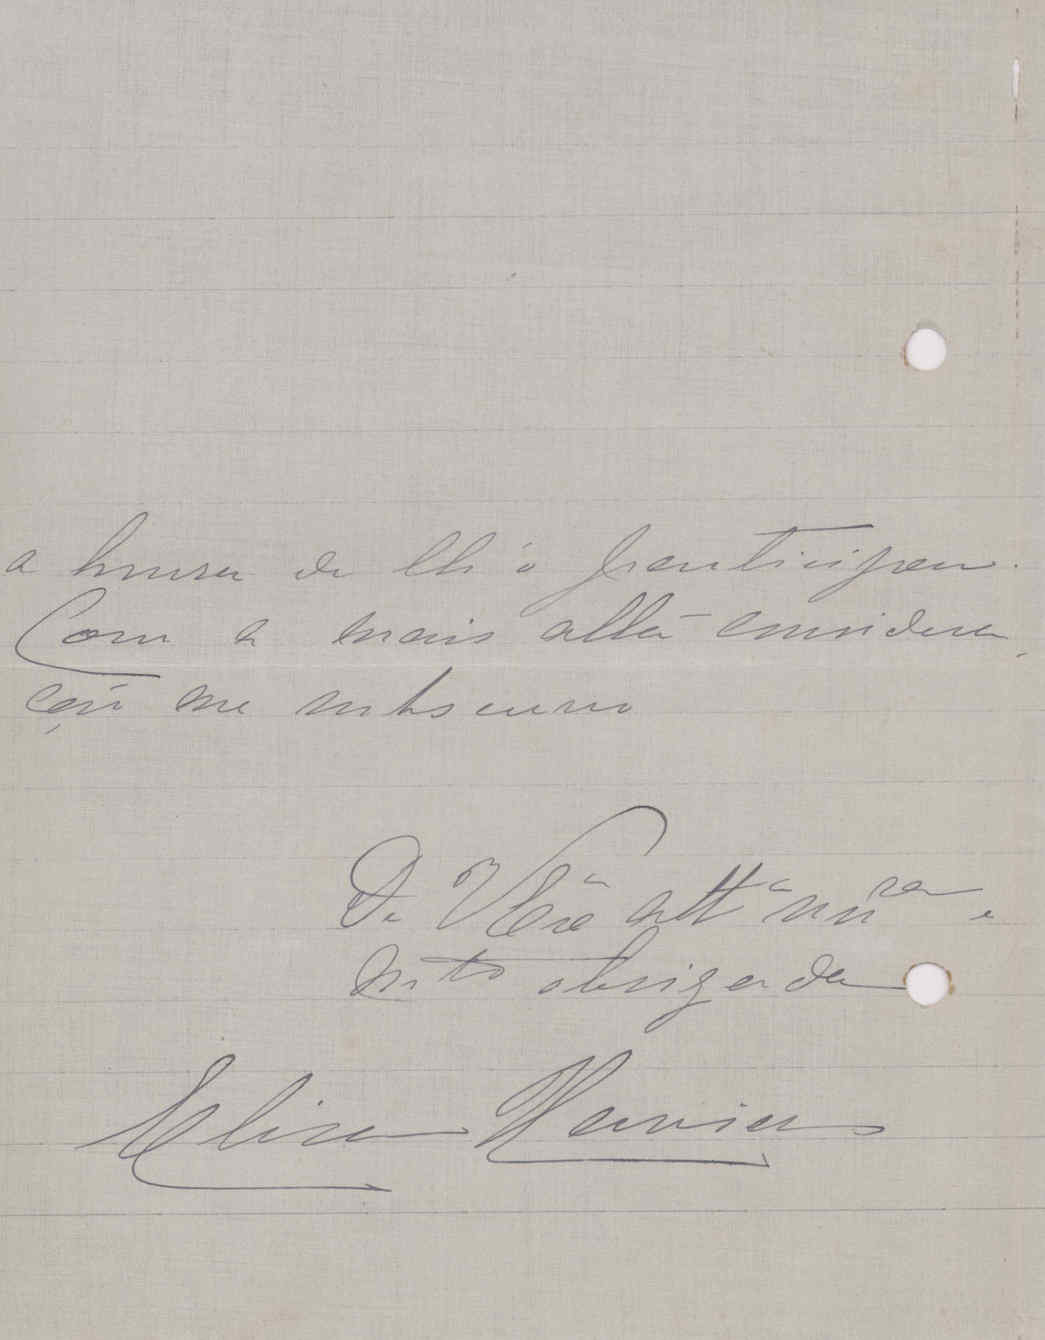 a honra de lh'o participar.
Com a mais alta considera
ção me subscrevo
De V Exª attª
mto obrigada
Elisa